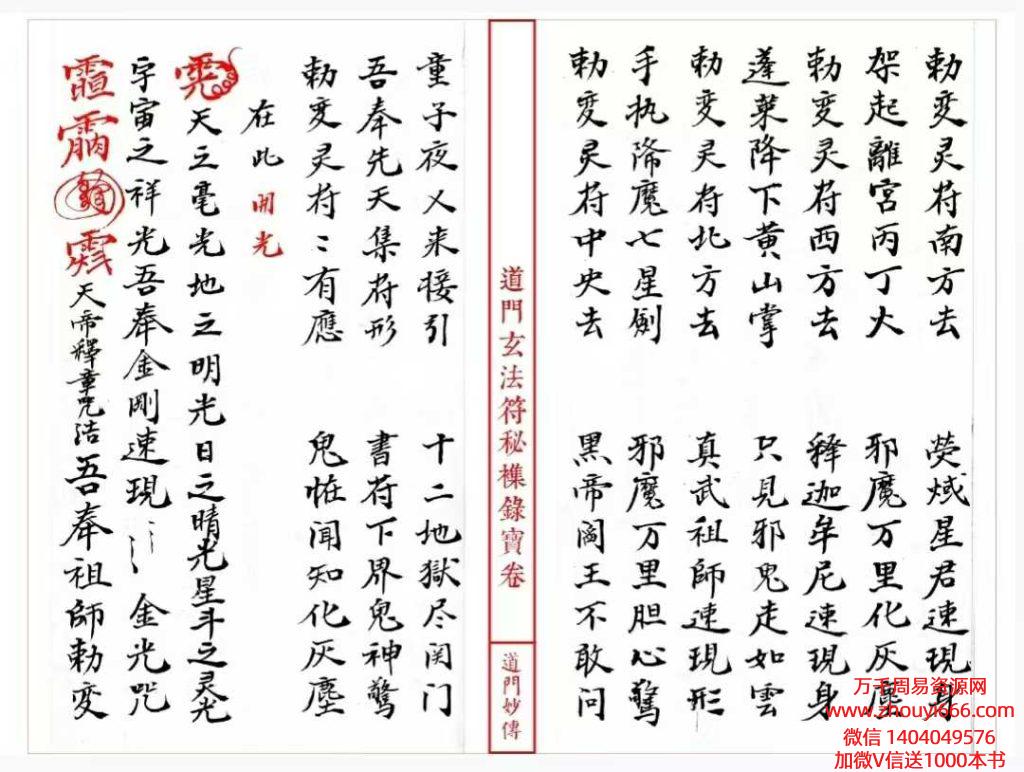 勅变灵符南方去 荧惑星君速現身
架起離宮丙丁火 邪魔万里化灰塵
勅变灵符西方去 释迦牟尼速現身
蓬萊降下黄山掌 只見邪鬼走如雲
勅变灵符北方去 真武祖師速現形
手执降魔七星劍 邪魔万里胆心驚
勅变灵符中央去 黑帝阎王不敢问
道門玄法符秘檏錄寶卷
道門妙傳
童子夜叉来接引 十二地獄尽関门
吾奉先天集符形 書符下界鬼神驚
勅变灵符〻有應 鬼怪闻知化灰塵
在此 開光
天之毫光地之明光日之晴光星斗之灵光
宇宙之祥光吾奉金剛速現〻〻 金光咒
天帝釋章咒洁 吾奉祖師勅变
万千周易资源网
www.zhouyi666.com
微信 1404049576
加微V信送1000本书